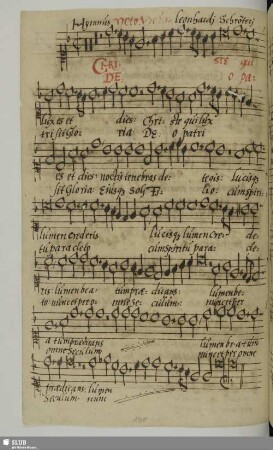 Hymnus octo Leonhardi Schröteri
CHRI- STE qui
DE- O pa-
lux es et dies Chri- ste qui lux
tri sit glo- ria DE- O patri
es et dies noctis tenebras de- tegis: lucis
sit gloria: Eiusq; soli Fi- lio: cum spiri-
lumen crederis lucisq; lumen cre- de-
tu paracleto cum spiritu para- cle-
ris: lumen bea- tum præ- dicans: lumen be-
to nunc et per- omne sec- ulum: nunc et per
a tum prædicans lumen be- a- tum
omne seculum nunc et per omne
prædicans lumen
seculum nunc
SLUB